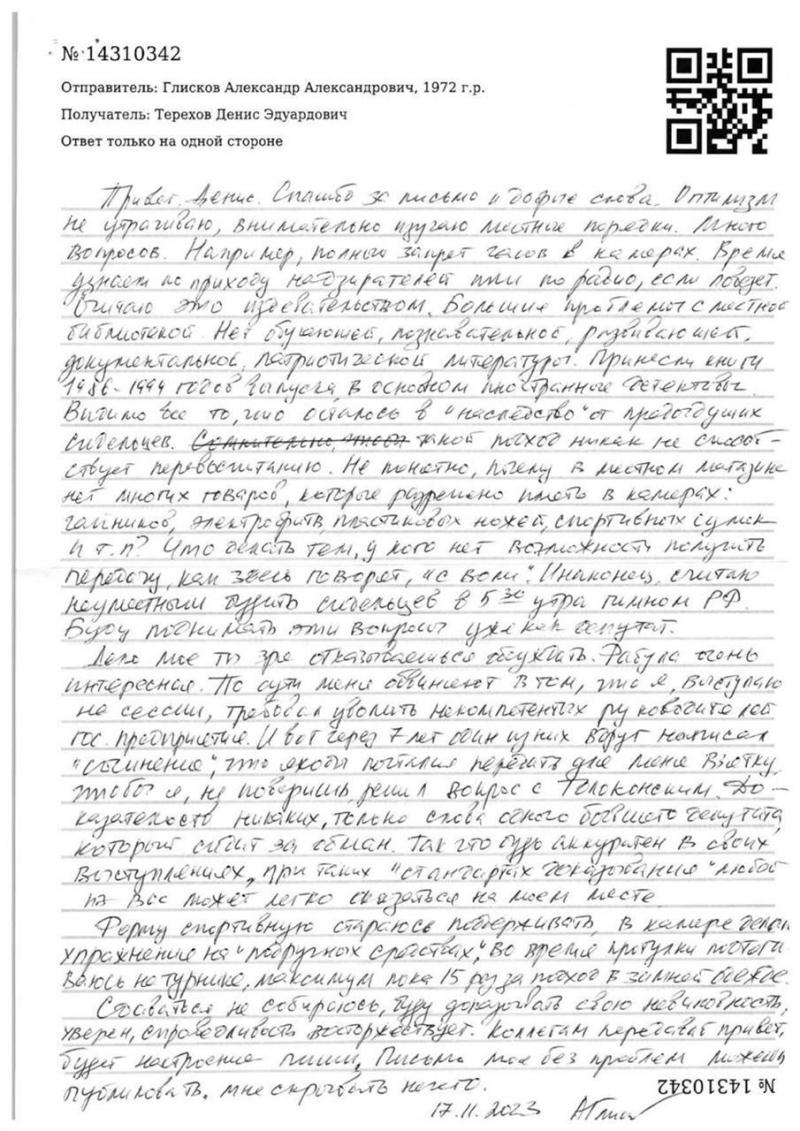 № 14310342
Отправитель: Глисков Александр Александрович, 1972 г.р.
Получатель: Терехов Денис Эдуардович
Ответ только на одной стороне
Привет, Денис. Спасибо за письмо и добрые слова. Оптимизм
не утрачиваю, внимательно изучаю местные порядки. Много
вопросов. Например, полный запрет часов в камерах. Время
узнаем по приходу надзирателей или по радио, если повезет.
Считаю это издевательством. Большие проблемы с местной
библиотекой. Нет обучающей, познавательной, развивающей,
документальной, патриотической литературы. Принесли книги
1986-1994 годов выпуска, в основном иностранные детективы.
Видимо все то, что осталось в "наследство" от предыдущих
сидельцев. Сомнительно, чтобы такой подход никак не способ-
ствует перевоспитанию. Не понятно, почему в местном магазине
нет многих товаров, которые разрешено иметь в камерах:
чайников, электробритв, пластиковых ножей, спортивных сумок
и т.п? Что делать тем, у кого нет возможности получить
передачу, как здесь говорят, "с воли". И наконец, считаю
неуместным будить сидельцев в 5 30 утра гимном РФ.
Буду поднимать эти вопросы уже как депутат.
Дело мое ты зря отказываешься обсуждать. Фабула очень
интересная. По сути меня обвиняют в том, что я, выступая
на сессии, требовал уволить некомпетентных руководителей
гос. предприятие. И вот через 7 лет один из них вдруг написал
"сочинение", что якобы пытался передать для меня взятку,
чтобы я, не поверишь, решил вопрос с Толоконским. До-
казательств никаких, только слова одного бывшего депутата,
который сидит за обман. Так что будь аккуратен в своих
выступлениях, при таких "стандартах доказывания" любой
из вас может легко оказаться на моем месте.
Форму спортивную стараюсь поддерживать, в камере делаю
упражнение на "подручных средствах", во время прогулки подтяги-
ваюсь на турнике, максимум пока 15 раз за подход в зимней одежде.
Сдаваться не собираюсь, буду доказывать свою невиновность,
уверен, справедливость восторжествует. Коллегам передавай привет,
будет настроение пиши. Письмо мое без проблем можешь
публиковать. мне скрывать нечего.
17.11.2023
№ 14310342